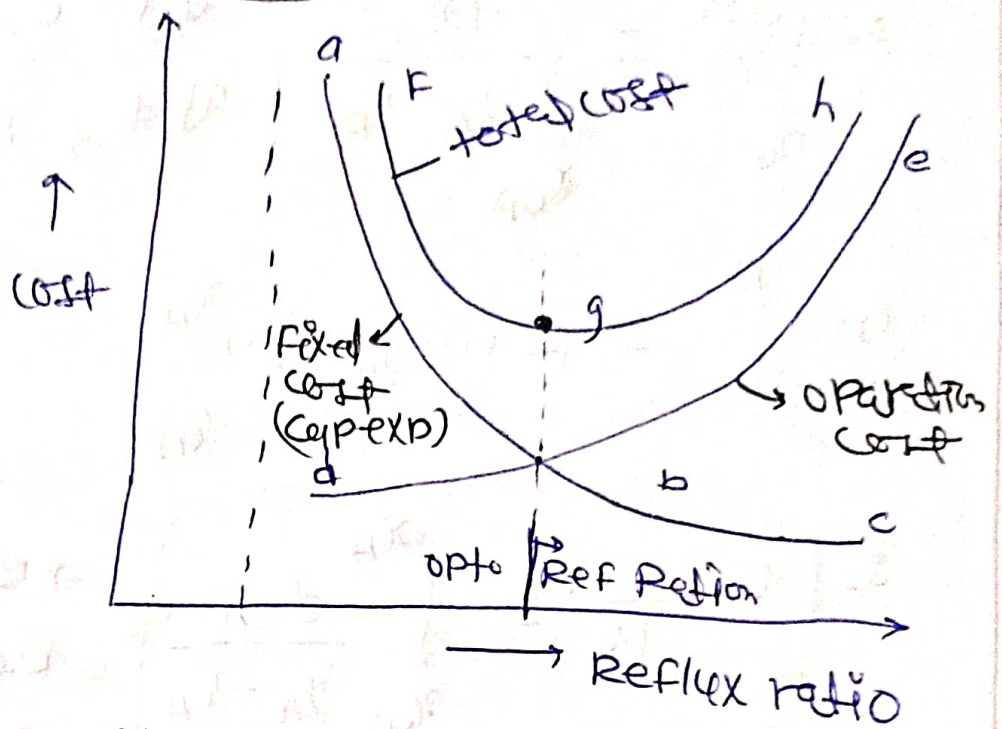 a
F
total cost
h
e
↑
cost
g
Fixed
cost
(cap-exp)
d
operation
cost
b
c
opto
Ref Ration
→ Reflux ratio